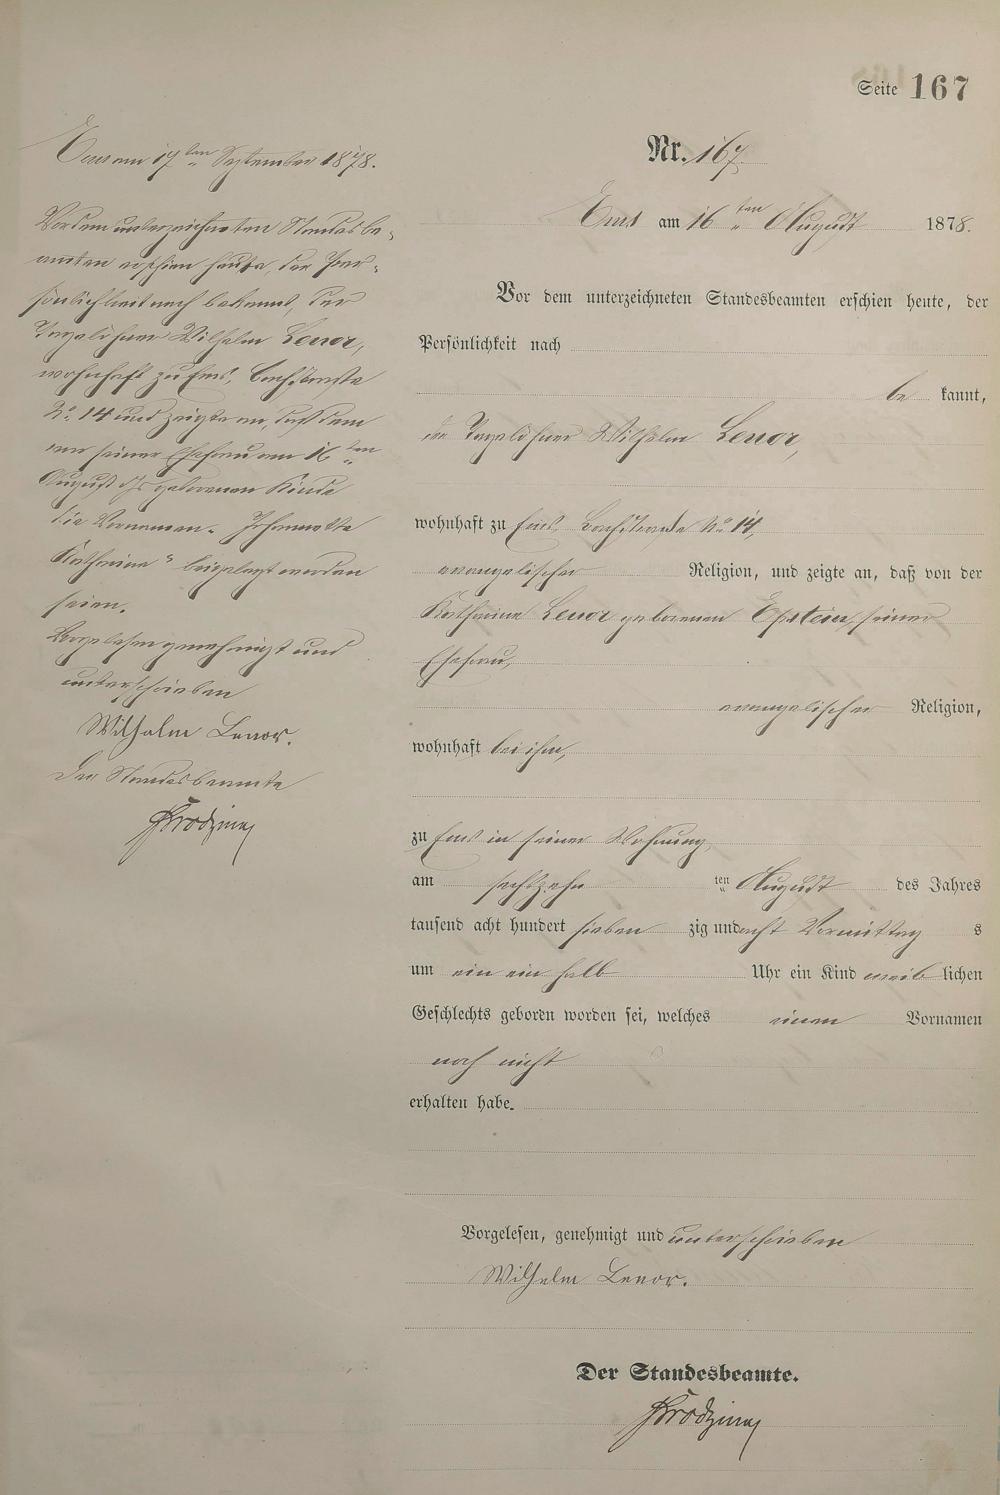 Seite 167
Nr. 167.
Ems am 16ten August 1878.
Vor dem unterzeichneten Standesbeamten erschien heute, der
Persönlichkeit nach
be kannt,
der Tagelöhner Wilhelm Lenor,
wohnhaft zu Ems, Bachstraße No 14,
evangelischer Religion, und zeigte an, daß von der
Katharine Lenor geborenen Epstein, seiner
Ehefrau,
evangelischer Religion,
wohnhaft bei ihm,
zu Ems in seiner Wohnung,
am sechszehn ten August des Jahres
tausend acht hundert sieben zig und acht Vormittag s
um ein ein halb Uhr ein Kind weib lichen
Geschlechts geboren worden sei, welches einen Vornamen
noch nicht
erhalten habe.
Vorgelesen, genehmigt und unterschrieben
Wilhelm Lenor.
Der Standesbeamte.
Ems am 17ten September 1878.
Vor dem unterzeichneten Standesbe-
amten erschien heute, der Per-
sönlichkeit nach bekannt, der
Tagelöhner Wilhelm Lenor,
wohnhaft zu Ems, Bachstraße
No 14 und zeigte an, daß dem
von seiner Ehefrau am 16ten
August ds geborenen Kinde
die Vornamen „Johannette
Katharine“ beigelegt worden
seien.
Vorgelesen genehmigt und
unterschrieben
Wilhelm Lenor.
Der Standesbeamte